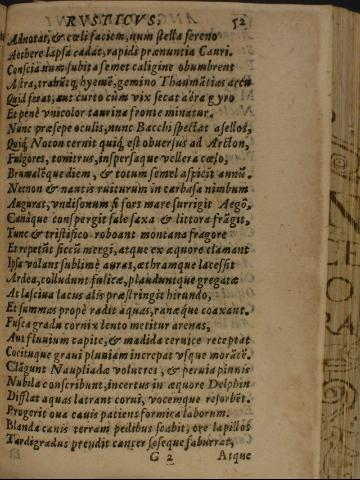 RVSTICVS. 52
Adnotat, & cœli faciem, num stella sereno
Aethere lapsa cadat, rapidi prænuntia Cauri.
Conscia num subita semet caligine obumbrent
Astra, trahātq, hyemē, gemino Thaumātias arcu
Quid ferat, aut curto cùm vix secat aëra gyro
Et penè vnicolor taurina fronte minatur.
Nunc præsepe oculis, nunc Bacchi spectat asellos,
Quiq, Noton cernit quiq, est obuersus ad Arcton,
Fulgores, tonitrus, inspersaque vellera cœlo,
Brumalēque diem, & totum semel aspicit annū.
Necnon & nautis ruiturum in carbasa nimbum
Augurat, vndisonum si fort mare surrigit Aegō,
Canàque conspergit sale saxa & littora frāgit,
Tunc & tristifico roboant montana fragore
Et repetūt siccū mergi, atque ex æquore clamant
Ipsa volans sublimè auras, æthramque lacessit
Ardea, colludunt fulicæ, plauduntque gregatæ
At lasciua lacus alis præstringit hirundo,
Et summas propè radit aquas, ranæque coaxant.
Fusca gradu cornix lento metitur arenas,
Aut fluuium capite, & madida ceruice receptat
Cocituque graui pluuiam increpat vsque morātē.
Clāgunt Naupliadæ volucres, & peruia pinnis
Nubila conscribunt, incertus in æquore Delphin
Difflat aquas latrant corui, vocemque resorbēt.
Progerit oua cauis patiens formica laborum.
Blanda canis terram pedibus scabit, ore lapillos
Tardigradus prēdit cancer seseque saburrat,
G 2 Atque